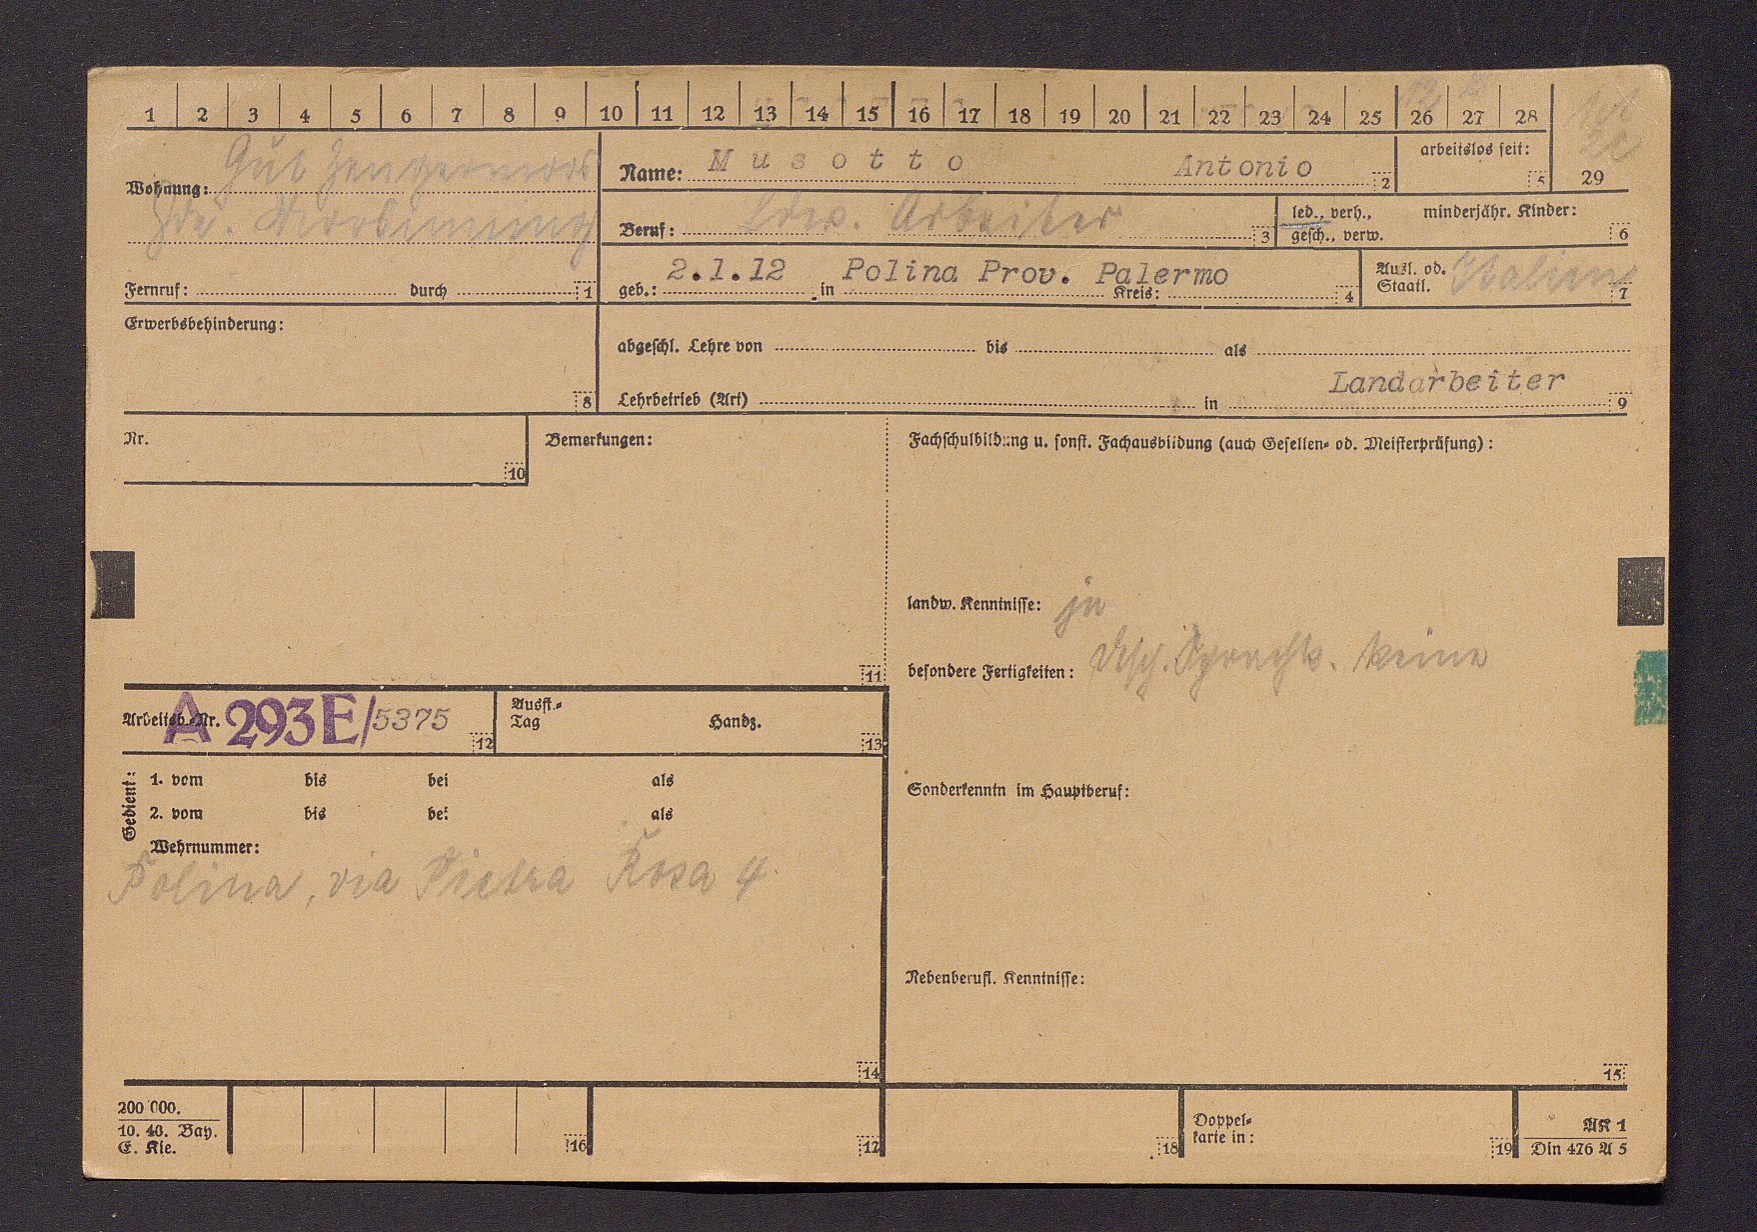 1 2 3 4 5 6 7 8 9 10 11 12 13 14 15 16 17 18 19 20 21 22 23 24 25 26 27 28
29
Wohnung: Gut Zengermoos
Gde. Moosinning
Fernruf: durch 1
Name: Musotto Antonio 2
arbeitslos seit: 5
Beruf: Ldw. Arbeiter 3
led., verh.,
gesch., verw.
minderjähr. Kinder: 6
geb.: 2.1.12 in Polina Prov. Palermo Kreis: 4
Ausl. od.
Staatl. Italien 7
Erwerbsbehinderung: 8
abgeschl. Lehre von bis als
Landarbeiter
Lehrbetrieb (Art) in 9
Nr. 10
Bemerkungen: 11
Fachschulbildung u. sonst. Fachausbildung (auch Gesellen- od. Meisterprüfung):
landw. Kenntnisse: ja
besondere Fertigkeiten: dtsch. Sprachk. keine
Arbeitsb.-Nr. A 293E/5375 12
Ausst.-
Tag Handz. 13
Gedient:
1. vom bis bei als
2. vom bis bei als
Wehrnummer:
Polina, via Pietra Rosa 4
14
Sonderkenntn im Hauptberuf:
Nebenberufl. Kenntnisse:
15
200 000.
10. 40. Bay.
E. Kie.
16 17 18
Doppel-
karte in: 19
AK 1
Din 476 A 5